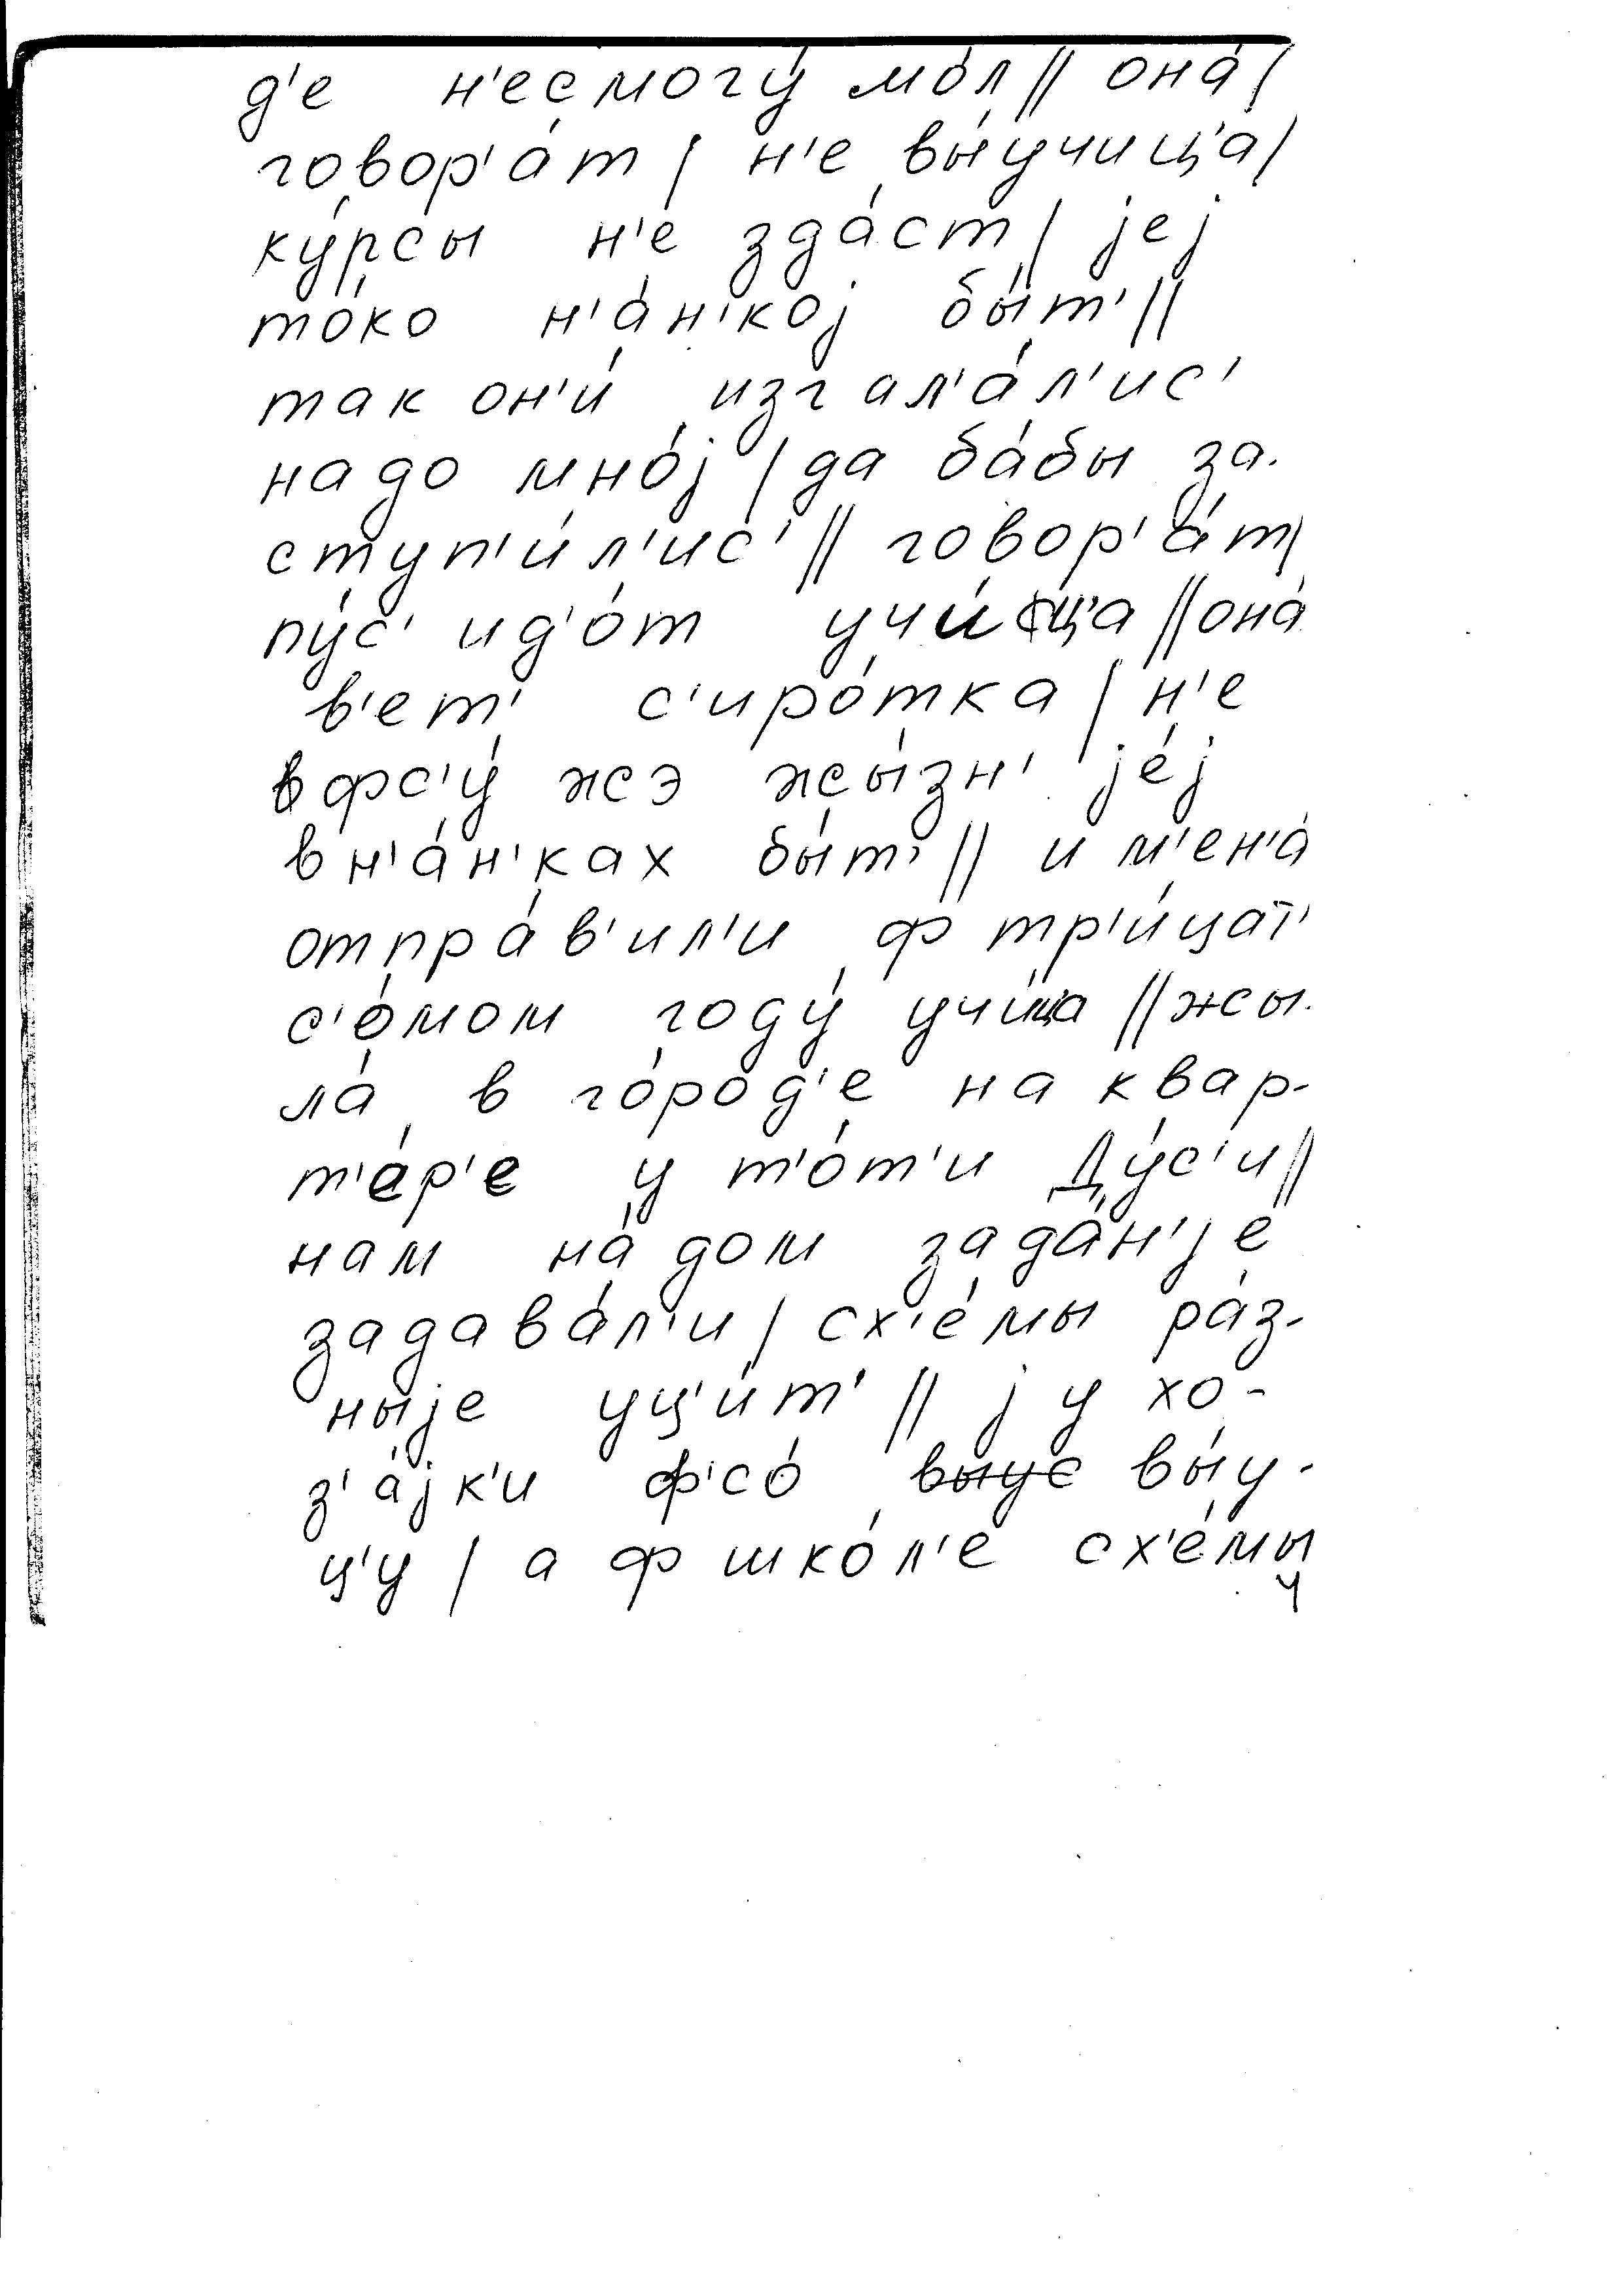 д'е н'есмогу́ мо́л || она́ |
говор'а́т | н'е вы́учиц'а |
ку́рсы н'е зда́ст | jej
то́ко н'а́н'кој бы́т' ||
так он'и́ изгал'а́л'ис'
надо мно́ј | да ба́бы за-
ступ'и́л'ис' || говор'а́т |
пу́с' ид'о́т учи́ц'а || она́
в'ет' с'иро́тка | н'е
вфс'у́ жэ жы́зн' је́ј
вн'а́н'ках бы́т' || и м'ен'а́
отпра́в'ил'и ф тр'и́цат'
с'о́мом году́ учи́ца || жы-
ла́ в го́род'е на квар-
т'е́р'е у т'о́т'и Ду́с'и ||
нам на́ дом зада́н'је
задава́л'и | сх'е́мы ра́з-
ныје уц'и́т' || ј у хо-
з'а́јк'и ф'со́ выус вы́у-
ц'у | а ф шко́л'е сх'е́мы
ч